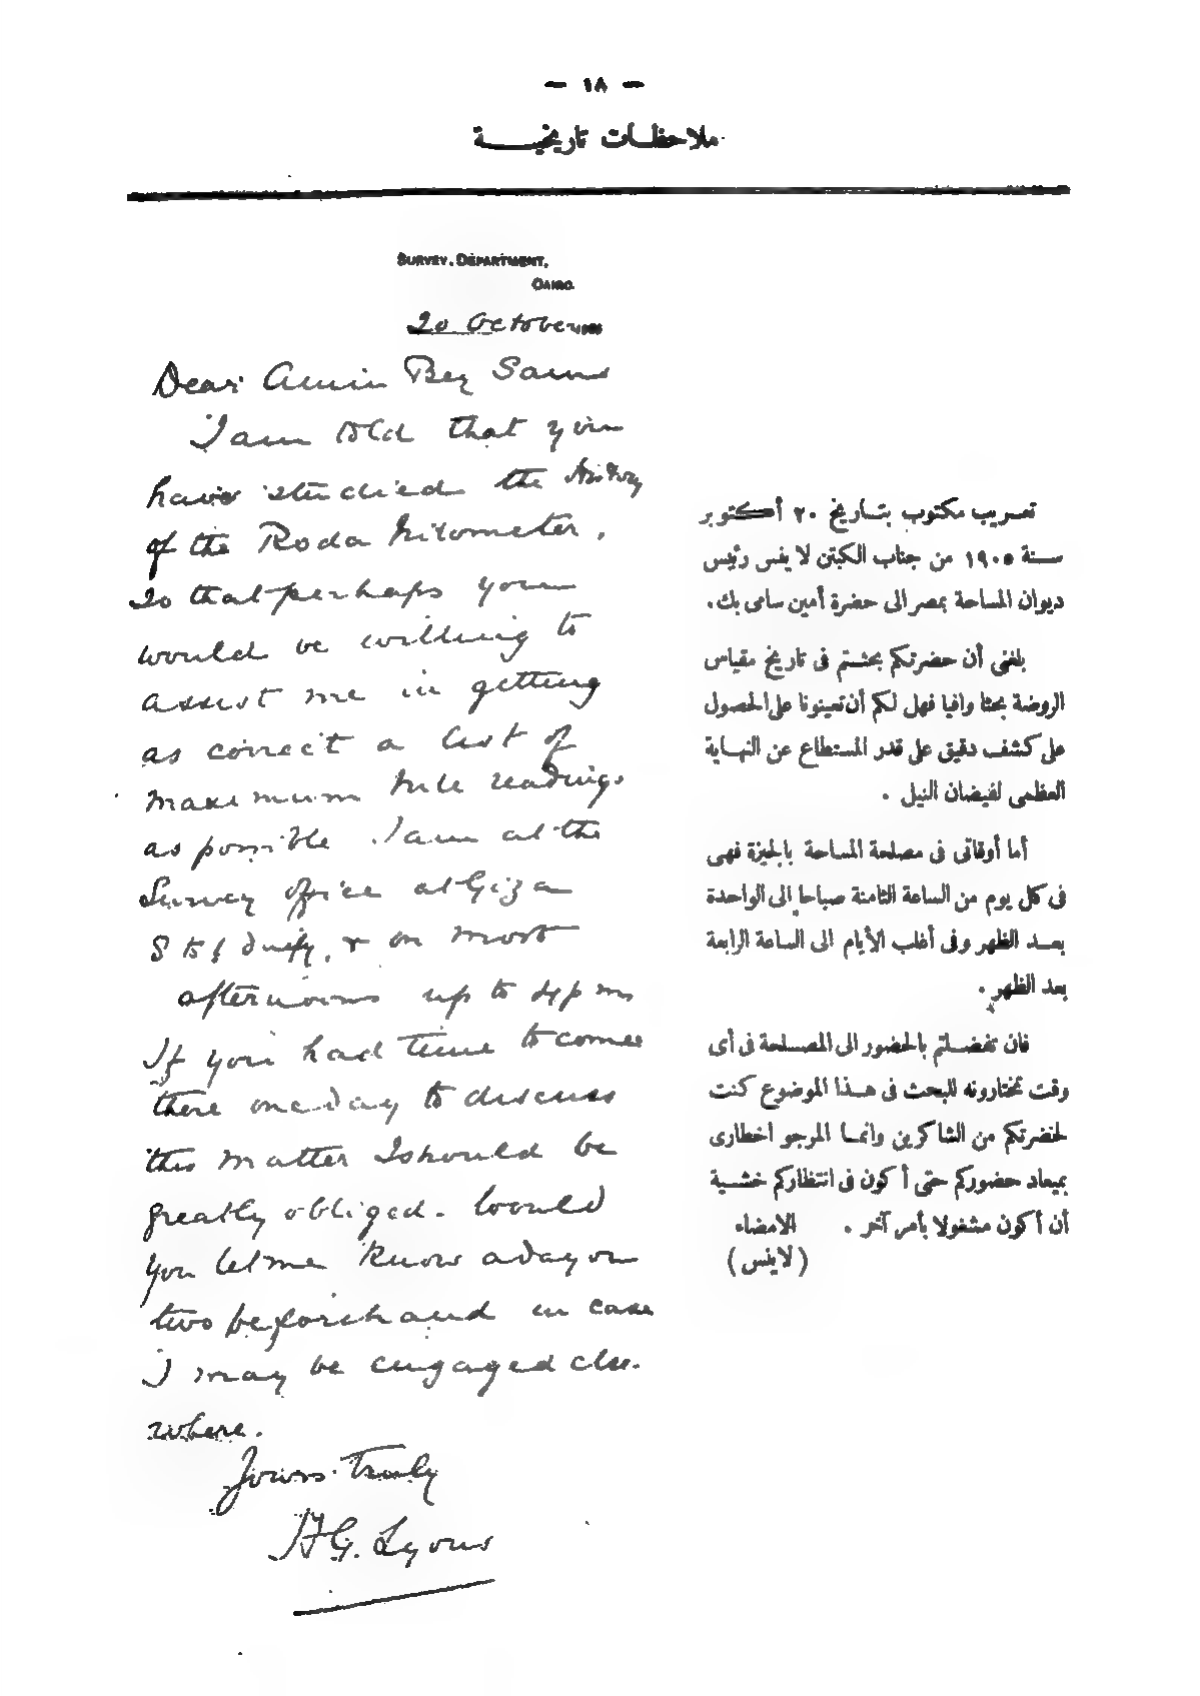 — ١٨ —
ملاحظات تاريخية
SURVEY DEPARTMENT,
CAIRO.
20 October
Dear Amin Bey Sami
I am told that you
have studied the history
of the Roda Nilometer,
so that perhaps you
would be willing to
assist me in getting
as correct a list of
maximum Nile readings
as possible. I am at the
Survey office at Giza
8 to 1 daily, & on most
afternoons up to 4 pm
If you had time to come
there one day to discuss
this matter I should be
greatly obliged. Would
you let me know a day or
two beforehand in case
I may be engaged else-
where.
Yours Truly
H G. Lyons
تعريب مكتوب بتاريخ ٢٠ أكتوبر
سنة ١٩٠٥ من جناب الكبتن لاينس رئيس
ديوان المساحة بمصر الى حضرة أمين سامى بك.
بلغنى أن حضرتكم بحثتم فى تاريخ مقياس
الروضة بحثا وافيا فهل لكم أن تعينونا على الحصول
على كشف دقيق على قدر المستطاع عن النهاية
العظمى لفيضان النيل .
أما أوقاتى فى مصلحة المساحة بالجيزة فهى
فى كل يوم من الساعة الثامنة صباحا الى الواحدة
بعد الظهر وفى أغلب الأيام الى الساعة الرابعة
بعد الظهر .
فان تفضلتم بالحضور الى المصلحة فى أى
وقت تختارونه للبحث فى هذا الموضوع كنت
لحضرتكم من الشاكرين وانما المرجو اخطارى
بميعاد حضوركم حتى أكون فى انتظاركم خشية
أن أكون مشغولا بأمر آخر . الامضاء
(لاينس)